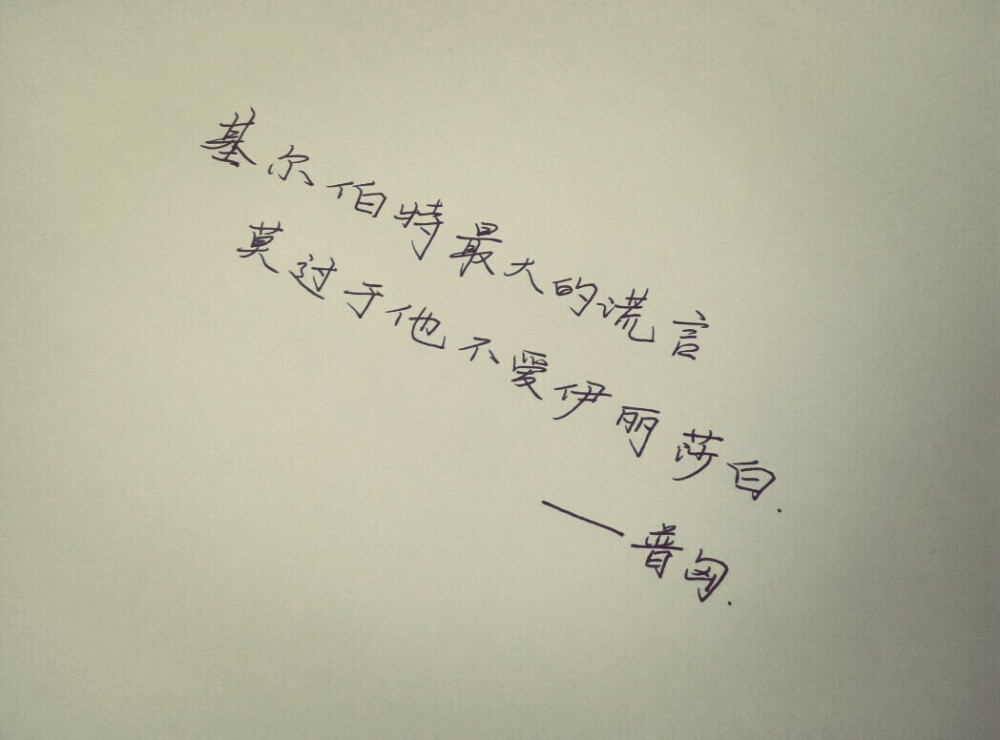 基尔伯特最大的谎言
莫过于他不爱伊丽莎白.
——普匈.